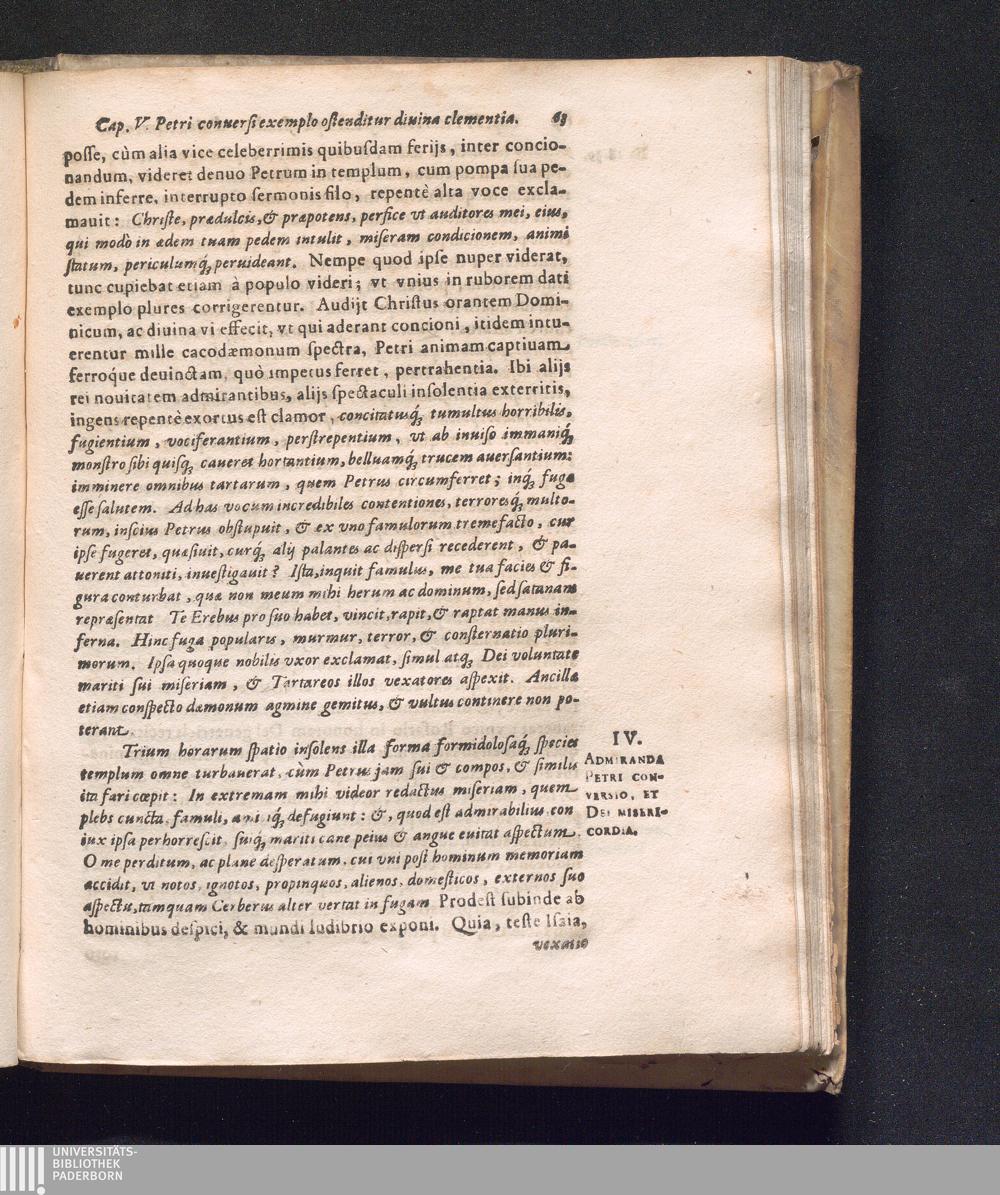 Cap. V. Petri conuerſi exemplo oſtenditur diuina clementia. 63
poſſe, cùm alia vice celeberrimis quibuſdam ferijs, inter concio-
nandum, videret denuo Petrum in templum, cum pompa ſua pe-
dem inferre, interrupto ſermonis filo, repentè alta voce excla-
mauit: Chriſte, prædulcis, & præpotens, perfice vt auditores mei, eius,
qui modò in ædem tuam pedem intulit, miſeram condicionem, animi
ſtatum, periculumq́; peruideant. Nempe quod ipſe nuper viderat,
tunc cupiebat etiam à populo videri; vt vnius in ruborem dati
exemplo plures corrigerentur. Audijt Chriſtus orantem Domi-
nicum, ac diuina vi effecit, vt qui aderant concioni, itidem intu-
erentur mille cacodæmonum ſpectra, Petri animam captiuam
ferroque deuinctam, quò impetus ferret, pertrahentia. Ibi alijs
rei nouitatem admirantibus, alijs ſpectaculi inſolentia exterritis,
ingens repentè exortus eſt clamor, concitatusq́; tumultus horribilis,
fugientium, vociferantium, perſtrepentium, vt ab inuiſo immaniq́;
monſtro ſibi quiſq; caueret hortantium, belluamq́; trucem auerſantium:
imminere omnibus tartarum, quem Petrus circumferret; inq́; fuga
eſſe ſalutem. Ad has vocum incredibiles contentiones, terroresq́; multo-
rum, inſcius Petrus obſtupuit, & ex vno famulorum tremefacto, cur
ipſe fugeret, quæſiuit, curq́; alij palantes ac diſperſi recederent, & pa-
uerent attoniti, inueſtigauit? Iſta, inquit famulus, me tua facies & fi-
gura conturbat, quæ non meum mihi herum ac dominum, ſed ſatanam
repræſentat Te Erebus pro ſuo habet, vincit, rapit, & raptat manus in-
ferna. Hinc fuga popularis, murmur, terror, & conſternatio pluri-
morum. Ipſa quoque nobilis vxor exclamat, ſimul atq; Dei voluntate
mariti ſui miſeriam, & Tartareos illos vexatores aſpexit. Ancillæ
etiam conſpecto dæmonum agmine gemitus, & vultus continere non po-
terant.
Trium horarum ſpatio inſolens illa forma formidoloſaq́; ſpecies
templum omne turbauerat, cùm Petrus jam ſui & compos, & ſimilis
ita fari cœpit: In extremam mihi videor redactus miſeriam, quem
plebs cuncta, famuli, defugiunt: &, quod eſt admirabilius, con
iux ipſa perhorreſcit, ſuiq́; mariti cane peius & angue euitat aſpectum.
O me perditum, ac plane deſperatum, cui vni poſt hominum memoriam
accidit, vt notos, ignotos, propinquos, alienos, domeſticos, externos ſuo
aſpectu, tamquam Cerberus alter vertat in fugam Prodeſt ſubinde ab
hominibus deſpici, & mundi ludibrio exponi. Quia, teſte Iſaia,
vexatio
IV.
ADMIRANDA
PETRI CON-
VERSIO, ET
DEI MISERI-
CORDIA.
UNIVERSITÄTS-
BIBLIOTHEK
PADERBORN